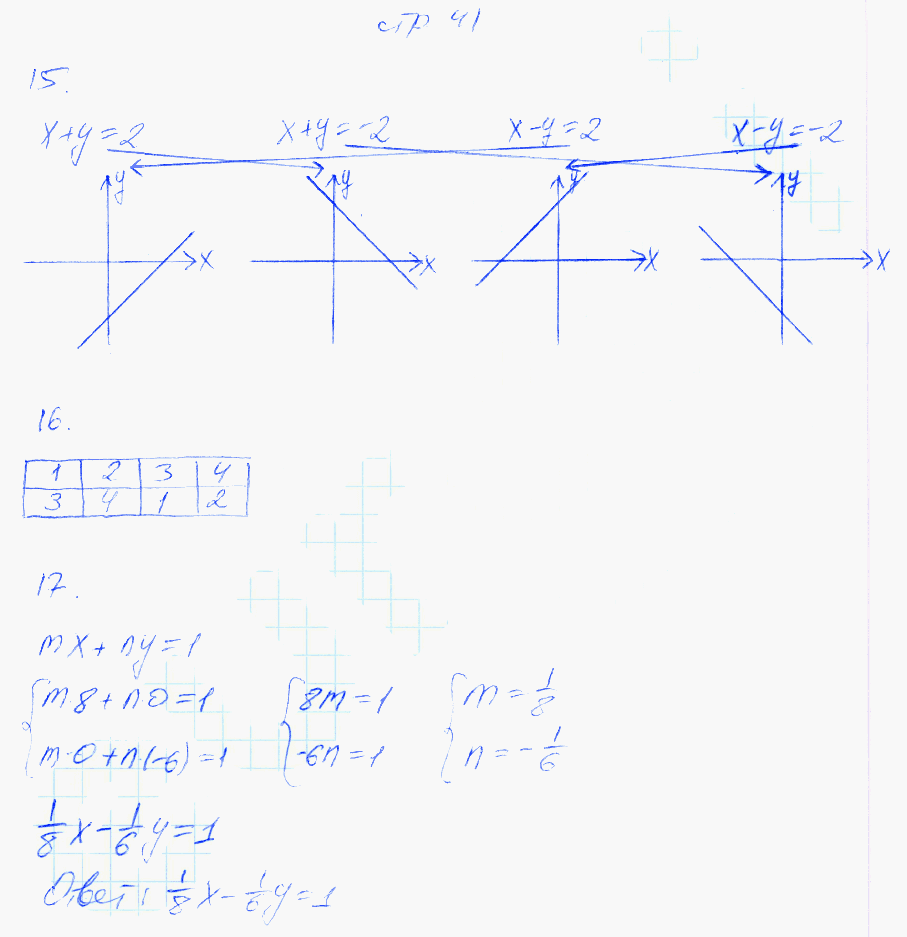 стр 41
15.
x+y=2 x+y=-2 x-y=2 x-y=-2
y y y y
x x x x
16.
1 2 3 4
3 4 1 2
17.
mx+ny=1
m8+n0=1 8m=1 m=1/8
m·0+n(-6)=1 -6n=1 n=-1/6
1/8x-1/6y=1
Ответ: 1/8x-1/6y=1